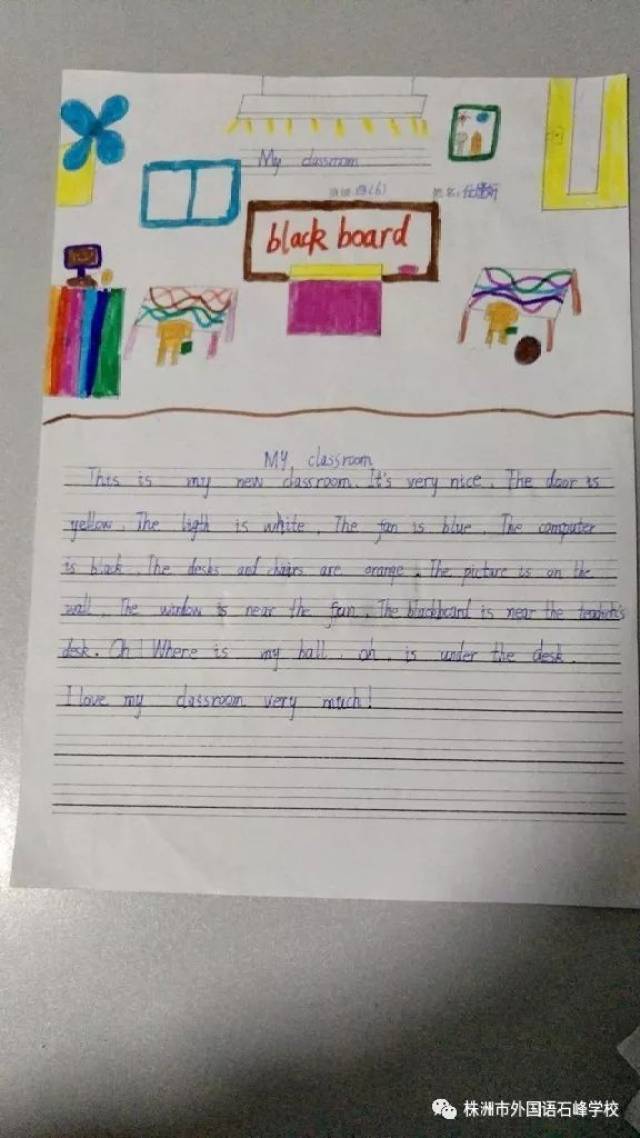 My classroom
班级:四(6) 姓名:
black board
MY classroom
This is my new classroom. It's very nice. The door is
yellow. The ligth is white. The fan is blue. The computer
is black. The desks and chairs are orange. The picture is on the
wall. The window is near the fan. The blackboard is near the teacher's
desk. Oh! Where is my ball. oh. is under the desk.
I love my classroom very much!
株洲市外国语石峰学校